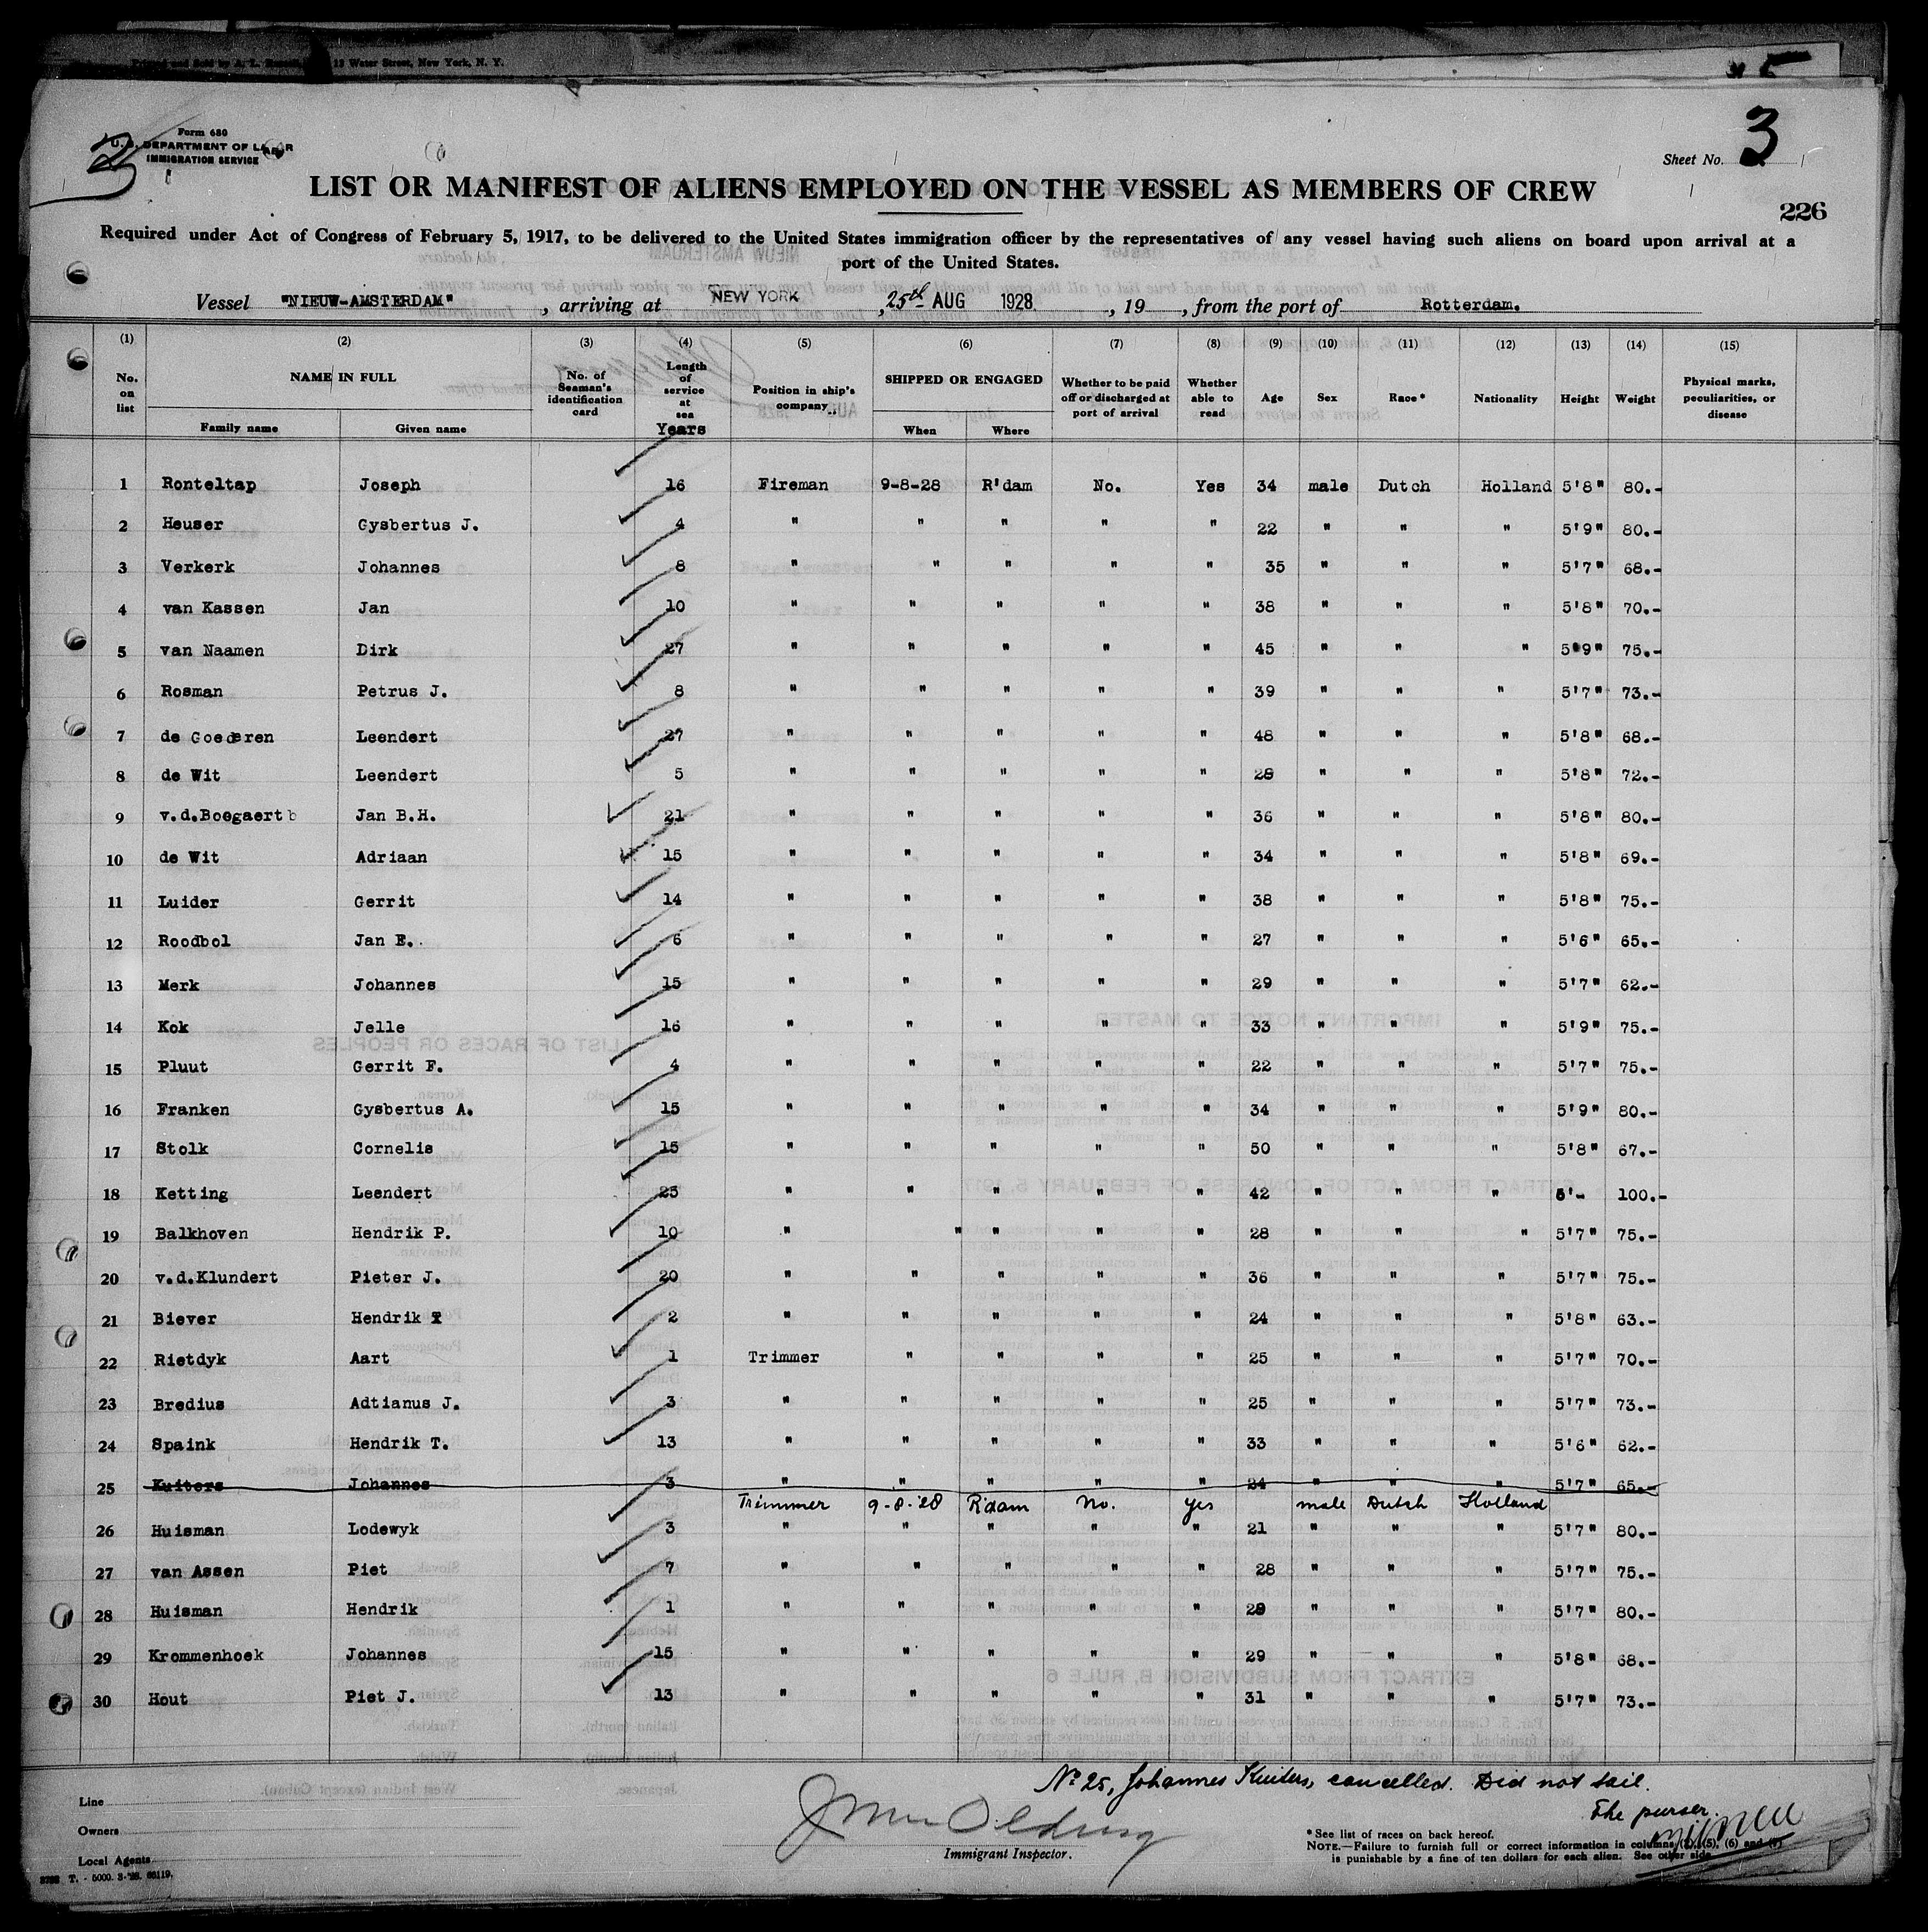 12 Water Street, New York, N. Y.
5
Form 680
U. S. DEPARTMENT OF LABOR
IMMIGRATION SERVICE
Sheet No. 3
LIST OR MANIFEST OF ALIENS EMPLOYED ON THE VESSEL AS MEMBERS OF CREW
226
Required under Act of Congress of February 5, 1917, to be delivered to the United States immigration officer by the representatives of any vessel having such aliens on board upon arrival at a
port of the United States.
Vessel "NIEUW-AMSTERDAM", arriving at NEW YORK, 25th AUG 1928, 19, from the port of Rotterdam.
(1) (2) (3) (4) (5) (6) (7) (8) (9) (10) (11) (12) (13) (14) (15)
No. on list NAME IN FULL No. of Seaman's identification card Length of service at sea Position in ship's company SHIPPED OR ENGAGED Whether to be paid off or discharged at port of arrival Whether able to read Age Sex Race* Nationality Height Weight Physical marks, peculiarities, or disease
Family name Given name Years When Where
1 Ronteltap Joseph 16 Fireman 9-8-28 R'dam No. Yes 34 male Dutch Holland 5'8" 80.-
2 Heuser Gysbertus J. 4 " " " " " 22 " " " 5'9" 80.-
3 Verkerk Johannes 8 " " " " " 35 " " " 5'7" 68.-
4 van Kassen Jan 10 " " " " " 38 " " " 5'8" 70.-
5 van Naamen Dirk 27 " " " " " 45 " " " 5'9" 75.-
6 Rosman Petrus J. 8 " " " " " 39 " " " 5'7" 73.-
7 de Goederen Leendert 27 " " " " " 48 " " " 5'8" 68.-
8 de Wit Leendert 5 " " " " " 28 " " " 5'8" 72.-
9 v.d.Boegaert b Jan B.H. 21 " " " " " 36 " " " 5'8" 80.-
10 de Wit Adriaan 15 " " " " " 34 " " " 5'8" 69.-
11 Luider Gerrit 14 " " " " " 38 " " " 5'8" 75.-
12 Roodbol Jan E. 6 " " " " " 27 " " " 5'6" 65.-
13 Merk Johannes 15 " " " " " 29 " " " 5'7" 62.-
14 Kok Jelle 16 " " " " " 33 " " " 5'9" 75.-
15 Pluut Gerrit F. 4 " " " " " 22 " " " 5'7" 75.-
16 Franken Gysbertus A. 15 " " " " " 34 " " " 5'9" 80.-
17 Stolk Cornelis 15 " " " " " 50 " " " 5'8" 67.-
18 Ketting Leendert 25 " " " " " 42 " " " 6'- 100.-
19 Balkhoven Hendrik P. 10 " " " " " 28 " " " 5'7" 75.-
20 v.d.Klundert Pieter J. 20 " " " " " 36 " " " 5'7" 75.-
21 Biever Hendrik T 2 " " " " " 24 " " " 5'8" 63.-
22 Rietdyk Aart 1 Trimmer " " " " 25 " " " 5'7" 70.-
23 Bredius Adtianus J. 3 " " " " " 25 " " " 5'7" 73.-
24 Spaink Hendrik T. 13 " " " " " 33 " " " 5'6" 62.-
25 Kuiters Johannes 3 " " " " " 24 " " " 5'7" 65.-
Trimmer 9-8-'28 R'dam No. yes male Dutch Holland
26 Huisman Lodewyk 3 " " " " " 21 " " " 5'7" 80.-
27 van Assen Piet 7 " " " " " 28 " " " 5'7" 75.-
28 Huisman Hendrik 1 " " " " " 29 " " " 5'7" 80.-
29 Krommenhoek Johannes 15 " " " " " 29 " " " 5'8" 68.-
30 Hout Piet J. 13 " " " " " 31 " " " 5'7" 73.-
No 25, Johannes Kuiters, cancelled. Did not sail.
The purser.
Line
Owners
Local Agents
Immigrant Inspector.
*See list of races on back hereof.
NOTE.—Failure to furnish full or correct information in columns (2), (5), (6) and (7)
is punishable by a fine of ten dollars for each alien. See other side.